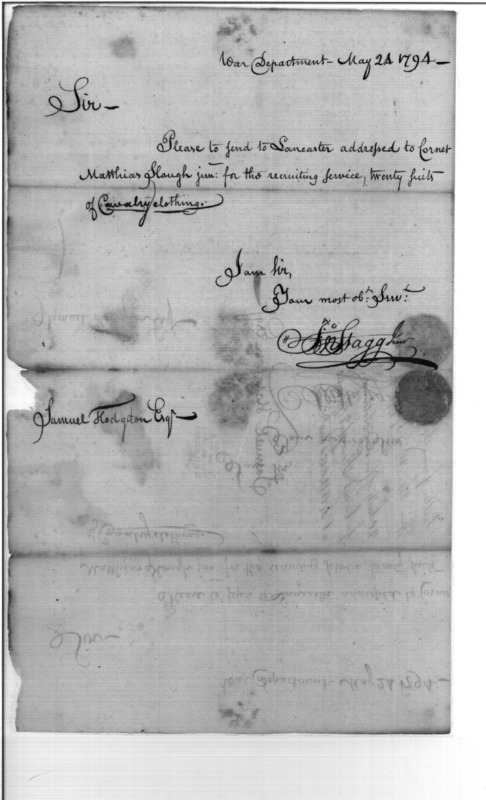 War Department - May 24 1794 -
Sir -
Please to send to Lancaster addressed to Cornet
Matthias Slough junr. for the recruiting service, twenty suits
of Cavalry clothing.
I am Sir,
Your most obt. Servt.
Jno Stagg Junr
Samuel Hodgdon Esqr